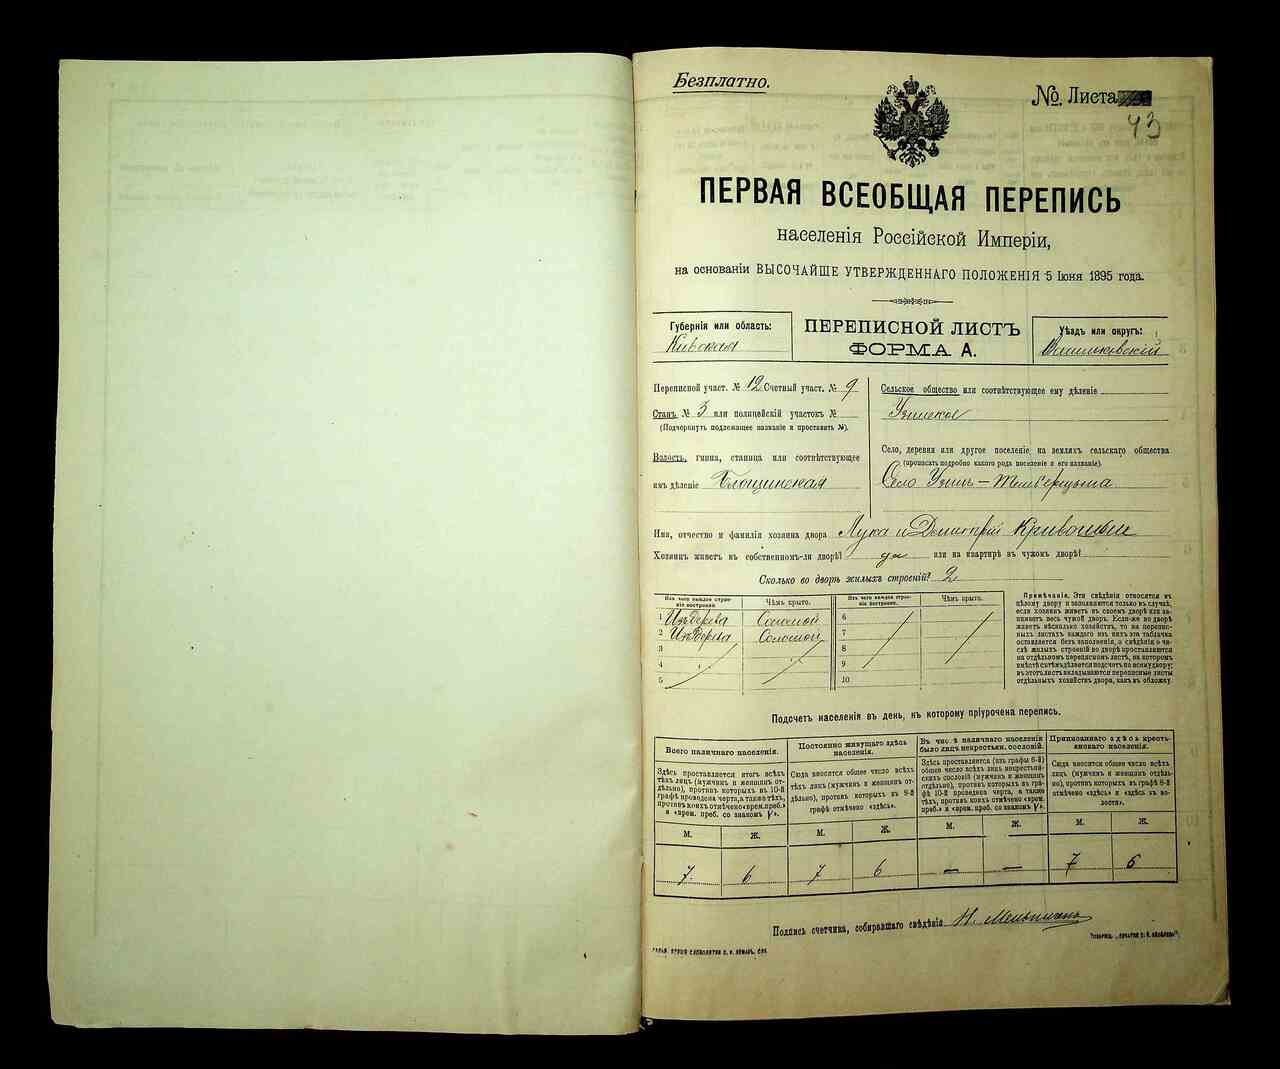 Безплатно.
№. Листа
43
ПЕРВАЯ ВСЕОБЩАЯ ПЕРЕПИСЬ
населенія Россійской Имперіи,
на основаніи ВЫСОЧАЙШЕ УТВЕРЖДЕННАГО ПОЛОЖЕНІЯ 5 Іюня 1895 года.
Губернія или область:
Кіевская
ПЕРЕПИСНОЙ ЛИСТЪ
ФОРМА А.
Уѣздъ или округъ:
Переписной участ. № 12 Счетный участ. № 9
Станъ № 3 или полицейскій участокъ №
(Подчеркнуть подлежащее названіе и проставить №).
Волость, гмина, станица или соотвѣтствующее
имъ дѣленіе
Сельское общество или соотвѣтствующее ему дѣленіе
Узинское
Село, деревня или другое поселеніе на земляхъ сельскаго общества
(прописать подробно какого рода поселеніе и его названіе).
Село Узинъ
Имя, отчество и фамилія хозяина двора Лука и Дмитрій
Хозяинъ живетъ въ собственномъ-ли дворѣ? да или на квартирѣ въ чужомъ дворѣ?
Сколько во дворѣ жилыхъ строеній? 2
Изъ чего каждое строе-
ніе построено. Чѣмъ крыто. Изъ чего каждое строе-
ніе построено. Чѣмъ крыто.
1 Изъ дерева Соломой 6
2 Изъ дерева Соломой 7
3 8
4 9
5 10
Примѣчаніе. Эти свѣдѣнія относятся къ
цѣлому двору и заполняются только въ случаѣ,
если хозяинъ живетъ въ своемъ дворѣ или за-
нимаетъ весь чужой дворъ. Если-же во дворѣ
живетъ нѣсколько хозяйствъ, то на перепис-
ныхъ листахъ каждаго изъ нихъ эта табличка
оставляется безъ заполненія, а свѣдѣнія о чи-
слѣ жилыхъ строеній во дворѣ проставляются
на отдѣльномъ переписномъ листѣ, на которомъ
вмѣстѣ съ тѣмъ дѣлается подсчетъ по всему двору;
въ этотъ листъ вкладываются переписные листы
отдѣльныхъ хозяйствъ двора, какъ въ обложку.
Подсчетъ населенія въ день, къ которому пріурочена перепись.
Всего наличнаго населенія.
Здѣсь проставляется итогъ всѣхъ
лицъ (мужчинъ и женщинъ от-
дѣльно), противъ которыхъ въ 10-й
графѣ проведена черта, а также тѣхъ,
противъ коихъ отмѣчено «врем. преб.»
и «врем. преб. со знакомъ V».
Постоянно живущаго здѣсь
населенія.
Сюда вносится общее число всѣхъ
тѣхъ лицъ (мужчинъ и женщинъ от-
дѣльно), противъ которыхъ въ 9-й
графѣ отмѣчено «здѣсь».
Въ числѣ наличнаго населенія
было лицъ некрестьян. сословій.
Здѣсь проставляется (изъ графы 6-й)
общее число всѣхъ лицъ некрестьян-
скихъ сословій (мужчинъ и женщинъ
отдѣльно), противъ которыхъ въ гра-
фѣ 10-й проведена черта, а также
тѣхъ, противъ коихъ отмѣчено «врем.
преб.» и «врем. преб. со знакомъ V».
Приписаннаго здѣсь кресть-
янскаго населенія.
Сюда вносится общее число всѣхъ
лицъ (мужчинъ и женщинъ отдѣль-
но), противъ которыхъ въ графѣ 8-й
отмѣчено «здѣсь» и «здѣсь къ во-
лости».
М. Ж. М. Ж. М. Ж. М. Ж.
7. 6 7 6 — — 7 6
Подпись счетчика, собиравшаго свѣдѣнія Н.